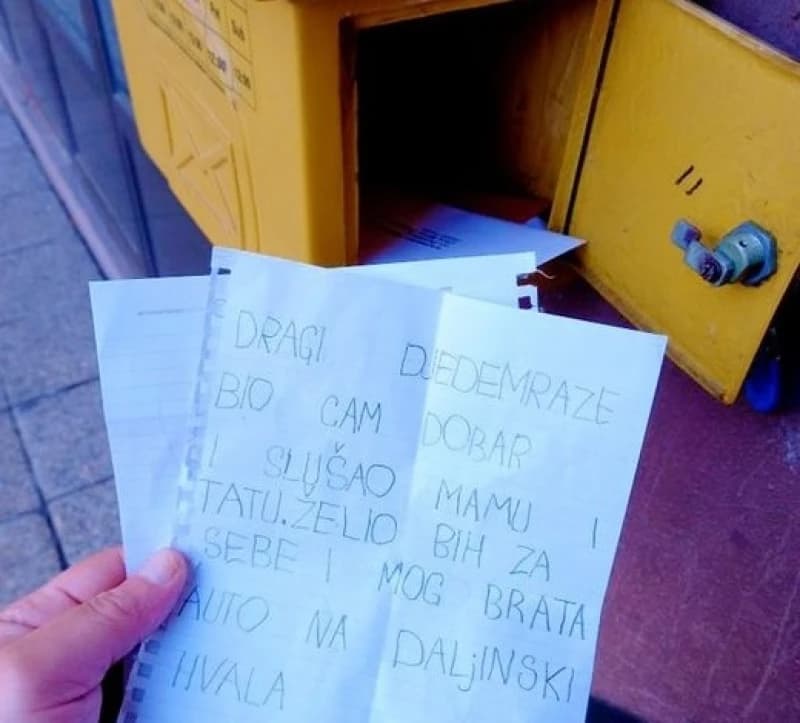 DRAGI DJEDEMRAZE
BIO CAM DOBAR
I SLUŠAO MAMU I
TATU.ŽELIO BIH ZA
SEBE I MOG BRATA
AUTO NA DALjINSKI
HVALA